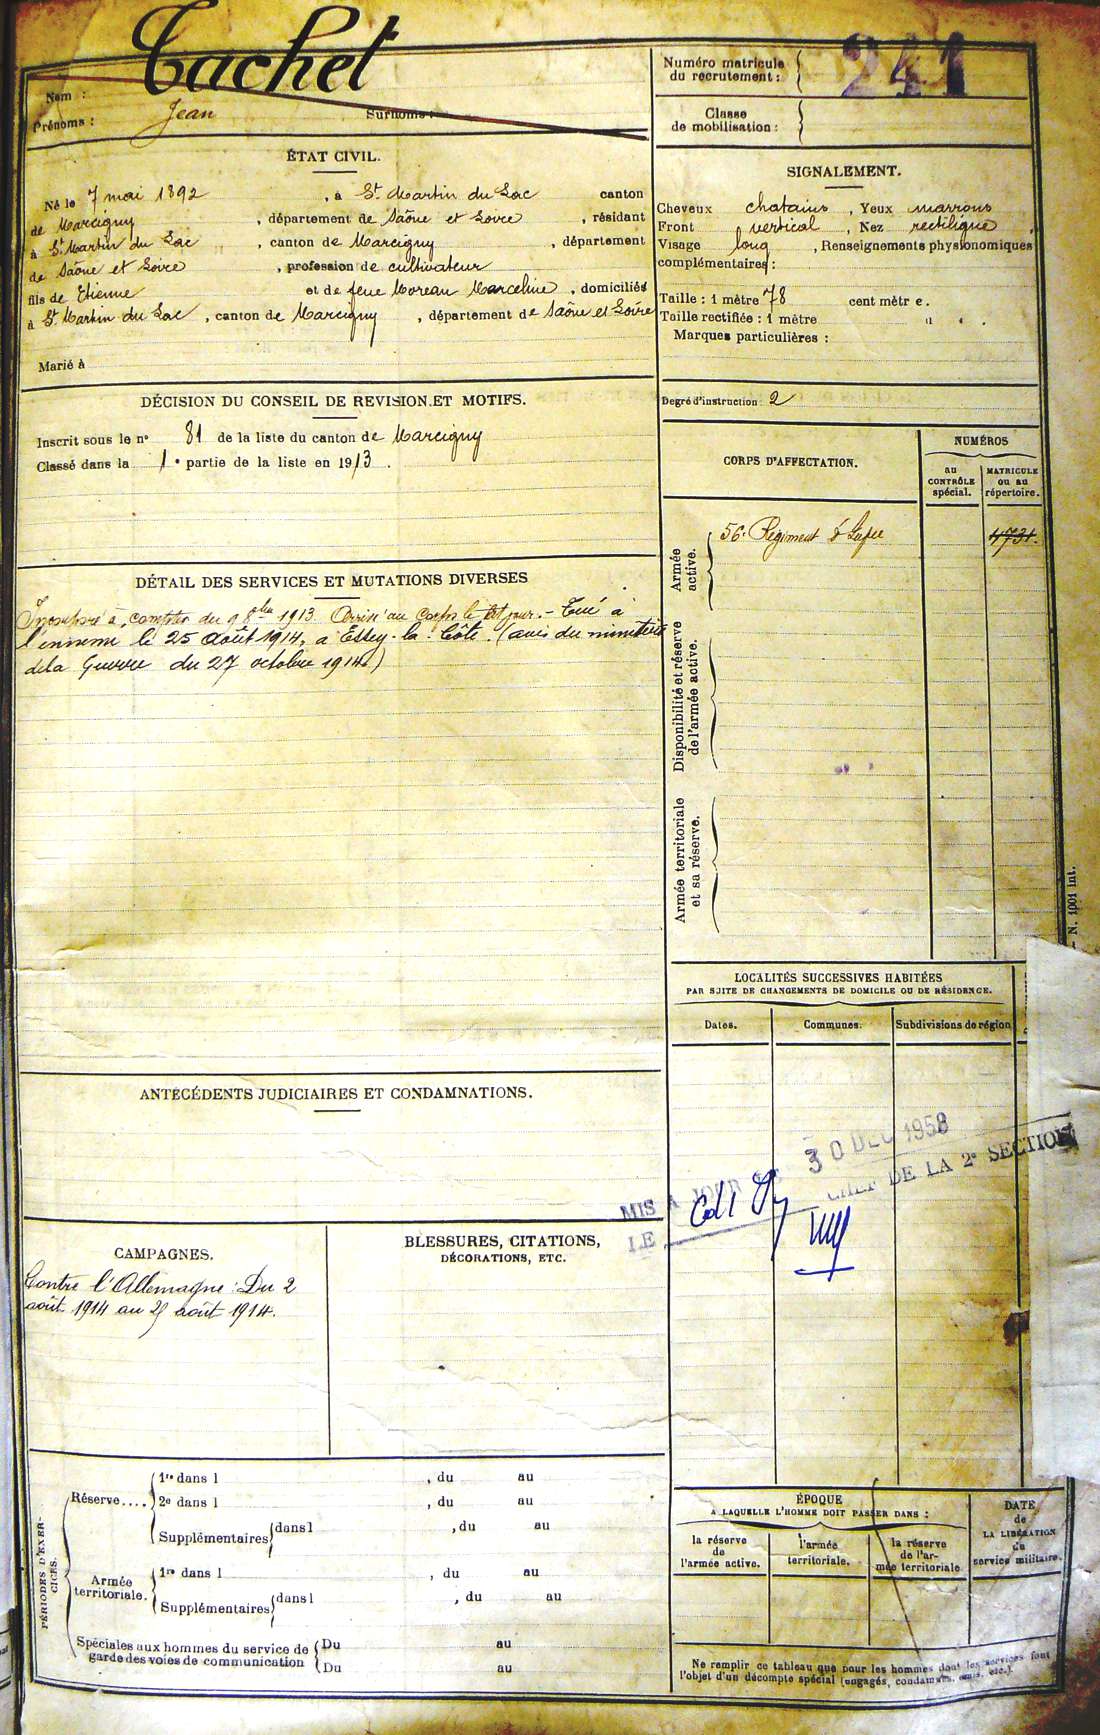 Cachet
Nom :
Prénoms : Jean Surnoms :
Numéro matricule
du recrutement : 241
Classe
de mobilisation :
ÉTAT CIVIL.
Né le 7 mai 1892 , à St Martin du Lac canton
de Marcigny , département de Saône et Loire , résidant
à St Martin du Lac , canton de Marcigny , département
de Saône et Loire , profession de cultivateur
fils de Etienne et de feue Moreau Marceline , domiciliés
à St Martin du Lac , canton de Marcigny , département de Saône et Loire
Marié à
SIGNALEMENT.
Cheveux chatains , Yeux marrons
Front vertical , Nez rectiligne .
Visage long , Renseignements physionomiques
complémentaires :
Taille : 1 mètre 78 cent mètre.
Taille rectifiée : 1 mètre
Marques particulières :
Degré d'instruction : 2
DÉCISION DU CONSEIL DE REVISION ET MOTIFS.
Inscrit sous le n° 81 de la liste du canton de Marcigny
Classé dans la 1e partie de la liste en 1913.
DÉTAIL DES SERVICES ET MUTATIONS DIVERSES
Incorporé à compter du 9 8bre 1913. Arrivé au Corps le dit jour. - Tué à
l'ennemi le 25 Août 1914, a Essey-la-Côte. (avis du ministère
de la Guerre du 27 octobre 1914)
CORPS D'AFFECTATION.
NUMÉROS
au
CONTRÔLE
spécial.
MATRICULE
ou au
répertoire.
Armée
active.
56e Régiment d'Infie
4731.
Disponibilité et réserve
de l'armée active.
Armée territoriale
et sa réserve.
— N. 1001 int.
LOCALITÉS SUCCESSIVES HABITÉES
PAR SUITE DE CHANGEMENTS DE DOMICILE OU DE RÉSIDENCE.
Dates.
Communes.
Subdivisions de région
ANTÉCÉDENTS JUDICIAIRES ET CONDAMNATIONS.
30 DEC 1958
MIS A JOUR
LE
CHEF DE LA 2e SECTION
CAMPAGNES.
Contre l'Allemagne : Du 2
août 1914 au 25 août 1914.
BLESSURES, CITATIONS,
DÉCORATIONS, ETC.
PÉRIODES D'EXER-
CICES.
Réserve....
1re dans l , du au
2e dans l , du au
Supplémentaires dans l , du au
Armée
territoriale.
1re dans l , du au
Supplémentaires dans l , du au
Spéciales aux hommes du service de
garde des voies de communication
Du au
Du au
ÉPOQUE
A LAQUELLE L'HOMME DOIT PASSER DANS :
la réserve
de
l'armée active.
l'armée
territoriale.
la réserve
de l'ar-
mée territoriale
DATE
de
LA LIBÉRATION
du
service militaire.
Ne remplir ce tableau que pour les hommes dont les services font
l'objet d'un décompte spécial (engagés, condamnés, omis, etc.).